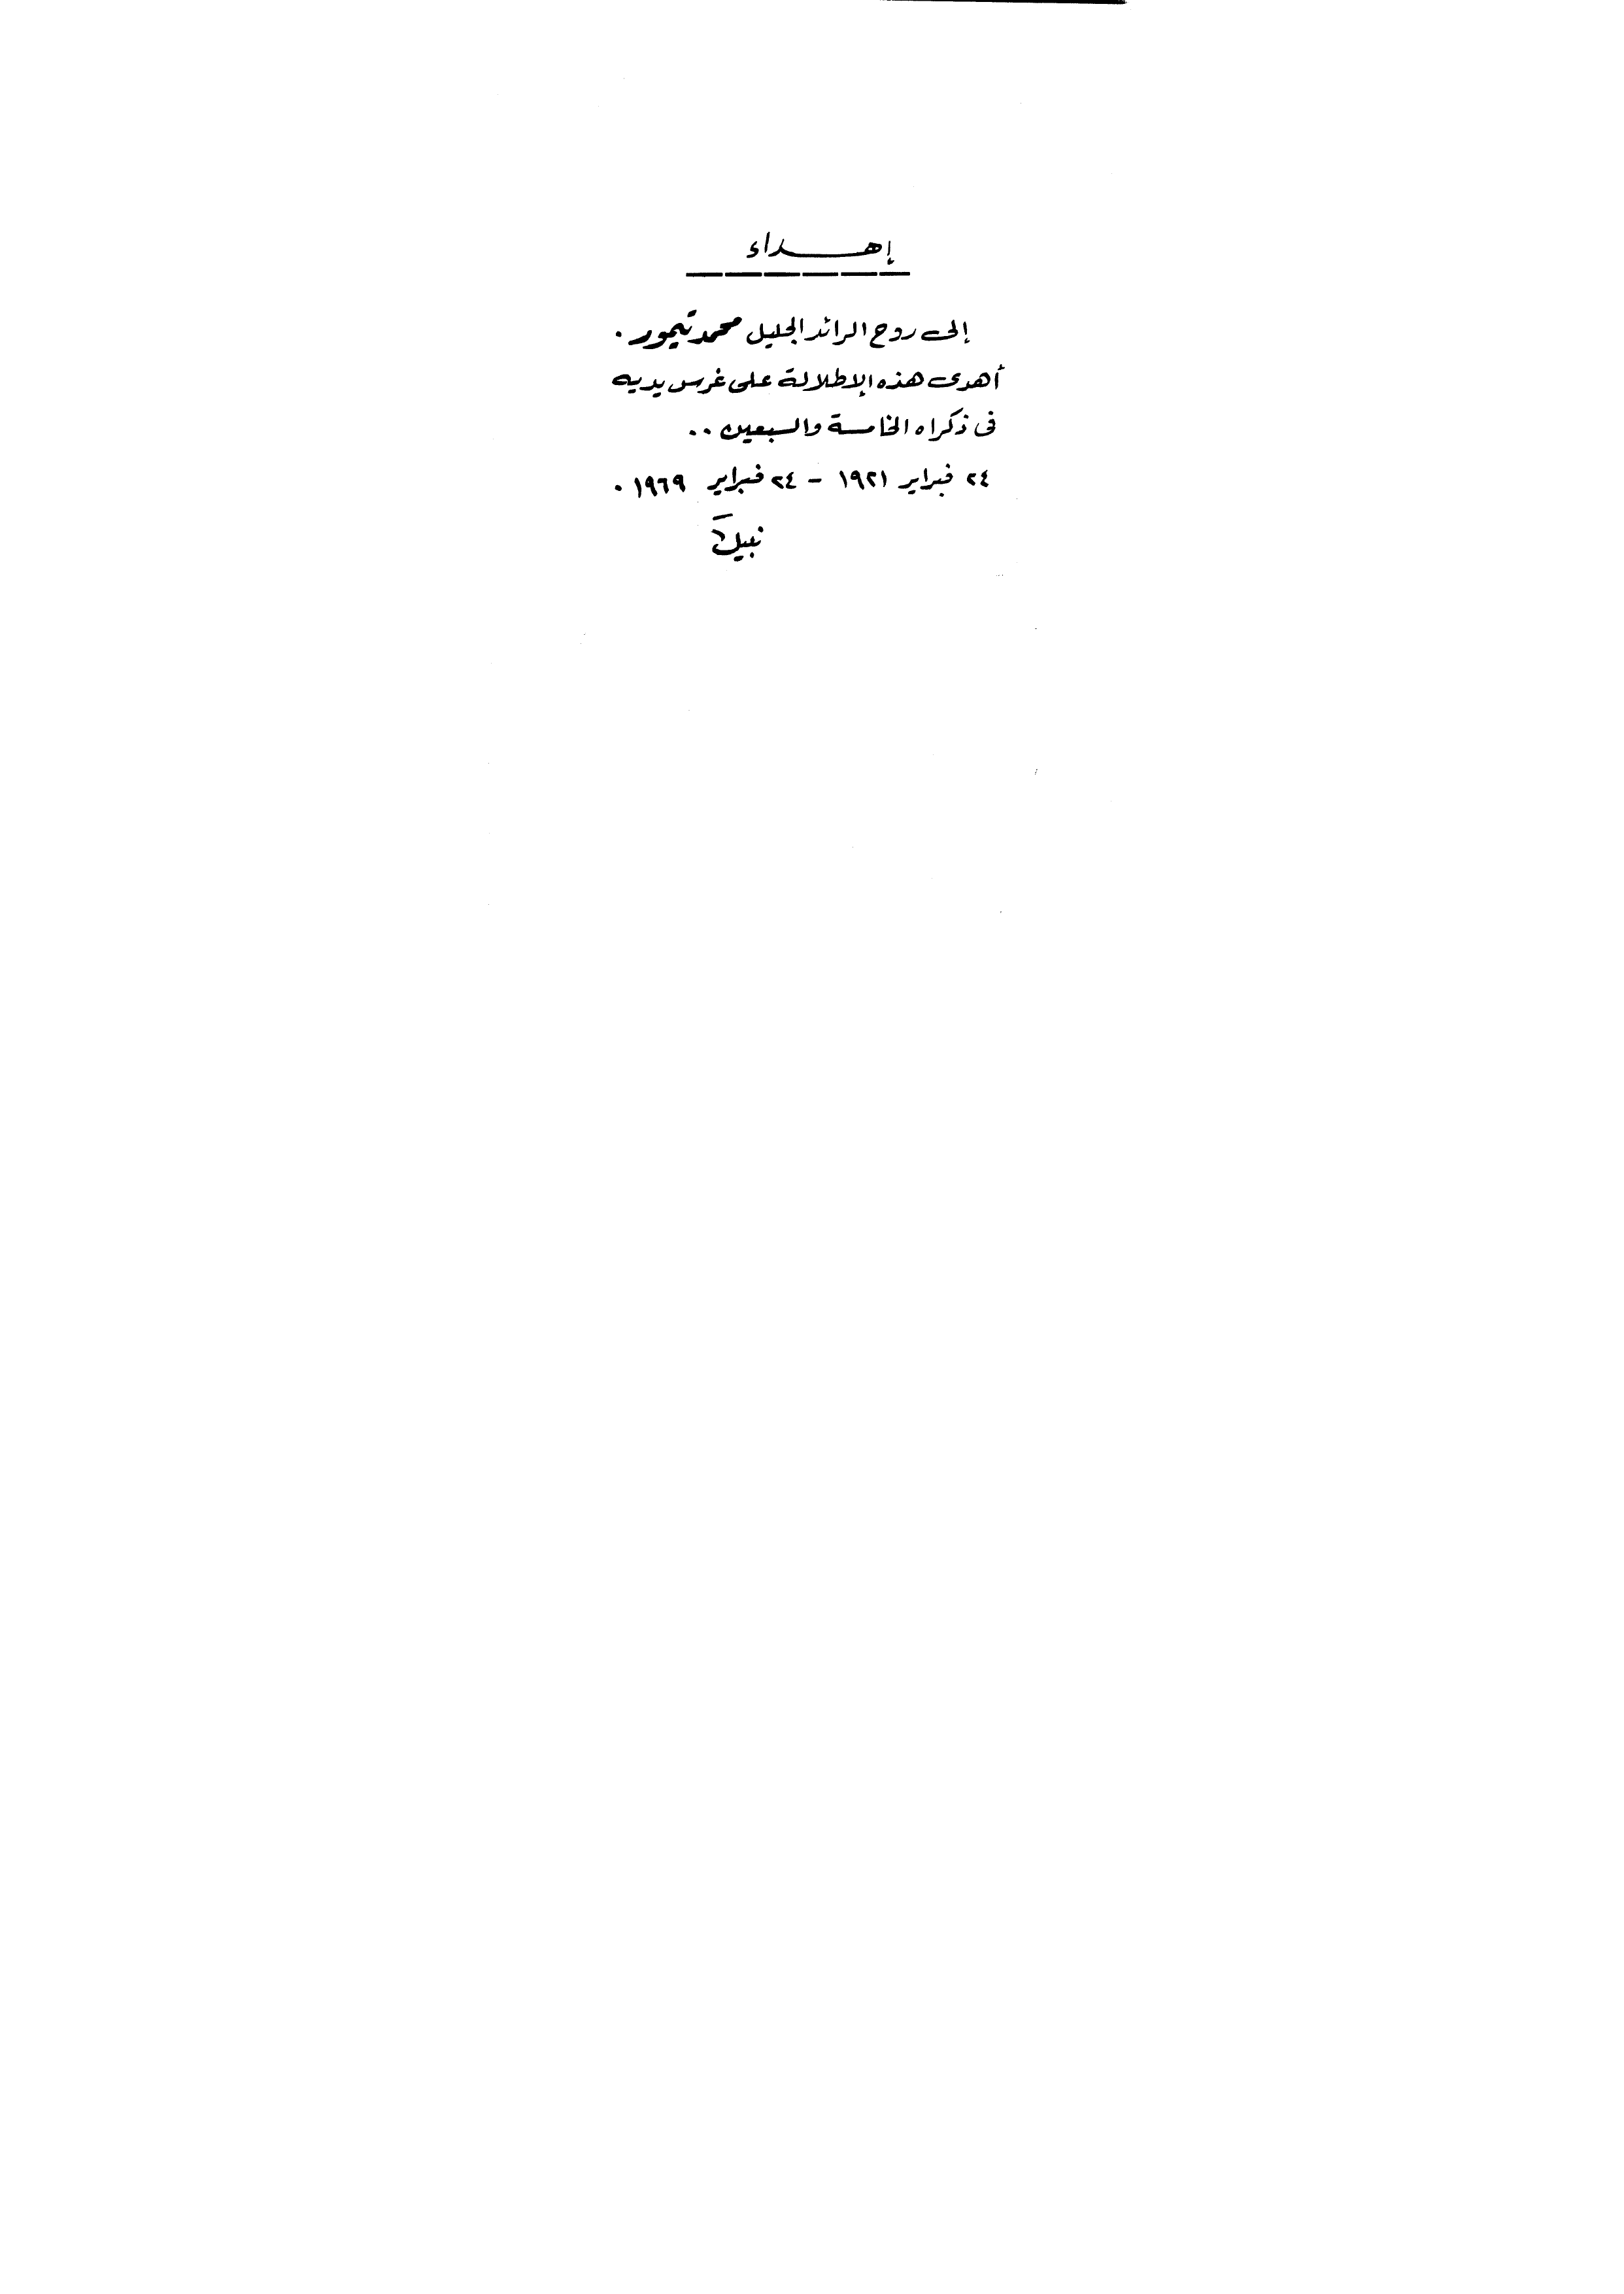 إهــــداء
إلى روح الرائد الجليل محمد تيمور .
أهدى هذه الإطلالة على غرس يديه
فى ذكراه الخامسة والسبعين ..
٢٤ فبراير ١٩٢١ - ٢٤ فبراير ١٩٦٩ .
نبيل